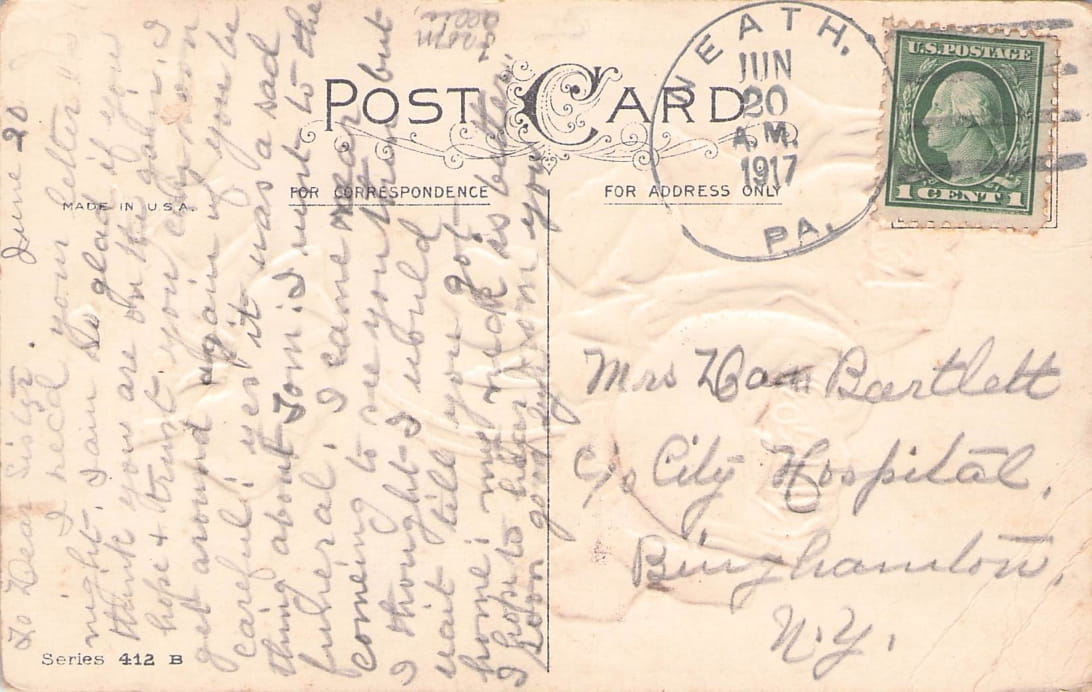 POST CARD
FOR CORRESPONDENCE
FOR ADDRESS ONLY
MADE IN U.S.A.
Series 412 B
NEATH.
JUN
20
A.M.
1917
PA.
U.S. POSTAGE
1 CENT 1
June 20
To Dear Sister.
I recd your letter
night. I am So glad if you
think you are on the gain. I
hope & trust you can soon
get around again if you be
careful: yes it was a sad
thing about Tom. I went to the
funeral. I came near
coming to see you then but
I thought I would
wait till you got
home: my neck is better
I hope to hear from you
soon good by
from
Mrs Bartlett
c/o City Hospital,
Binghamton,
N.Y.